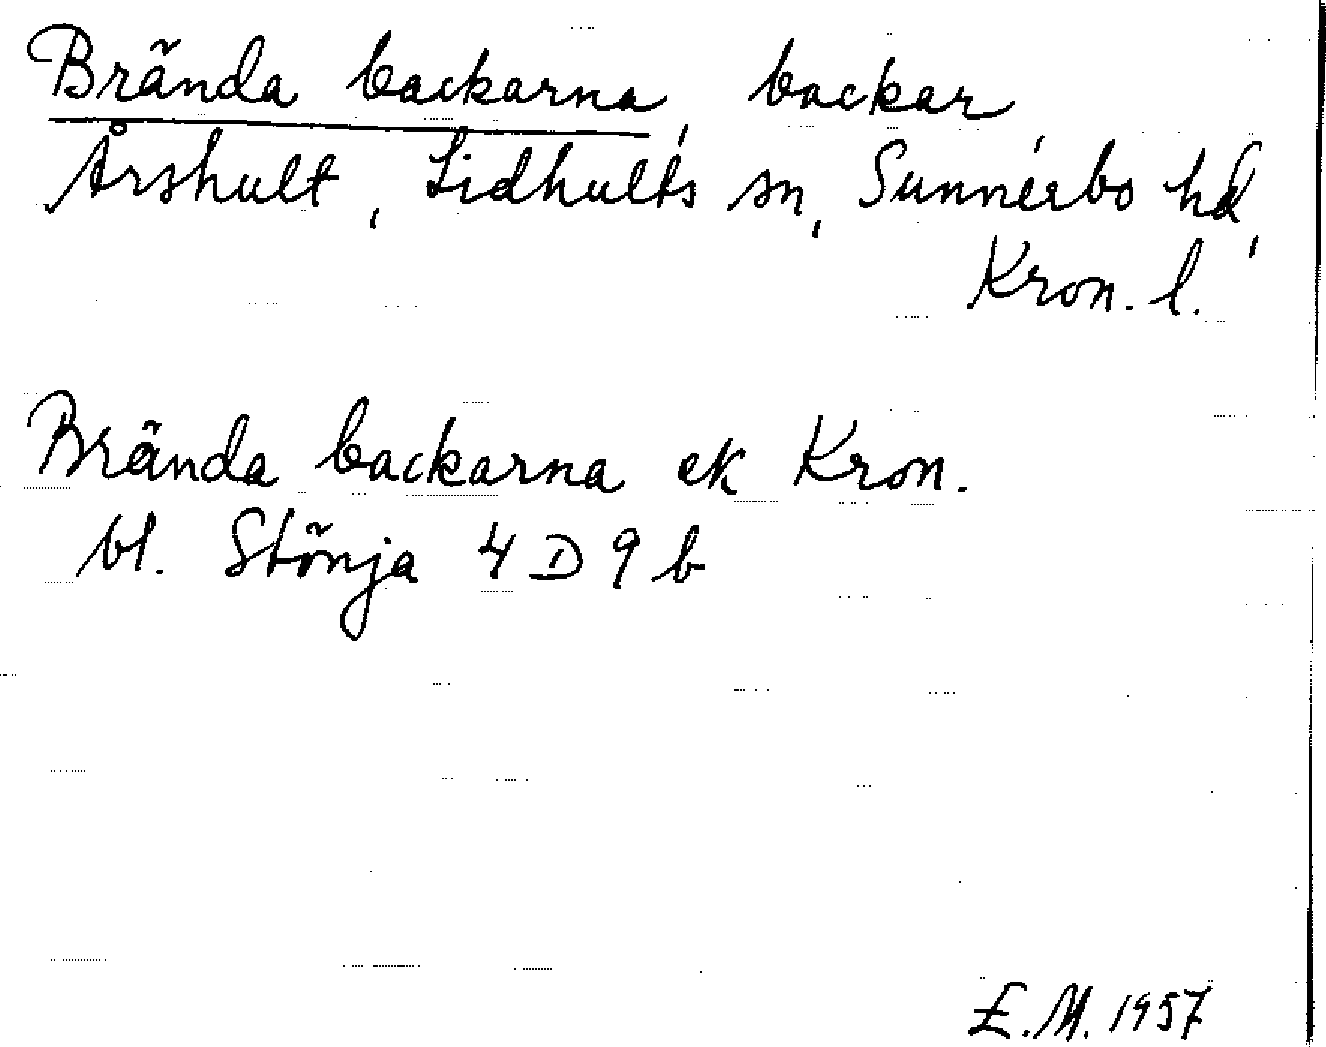 Brända backarna, backar,
Årshult, Lidhults sn, Sunnerbo hd,
Kron. l.
Brända backarna ek Kron.
bl. Stönja 4 D 9 b
E.M. 1957